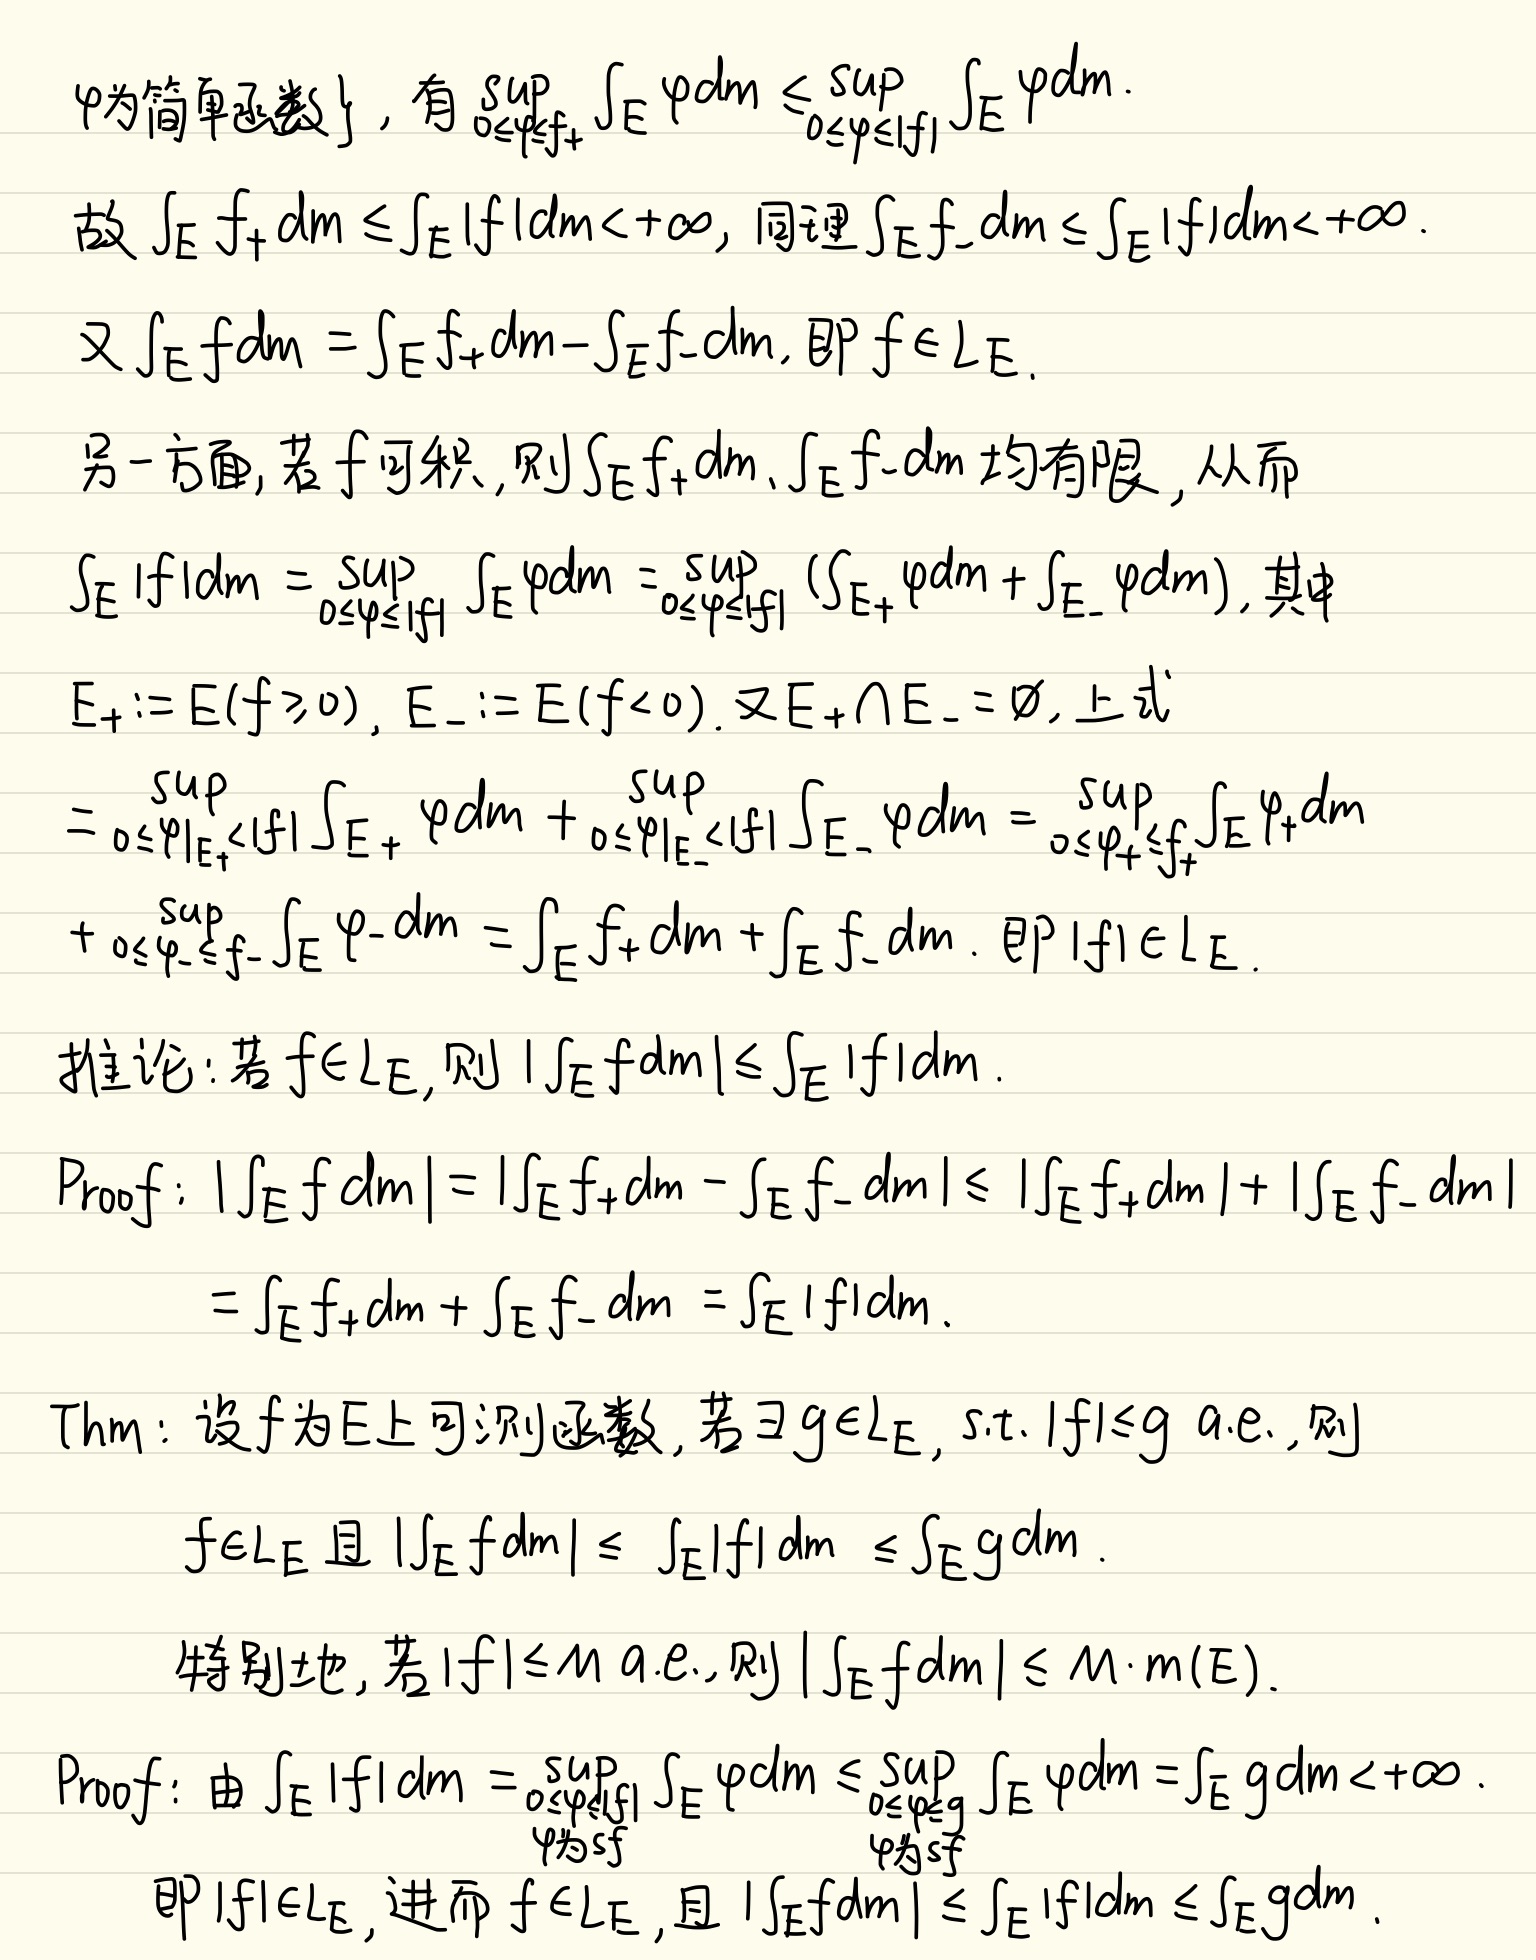 φ为简单函数}, 有 sup_{0≤φ≤f₊} ∫_E φdm ≤ sup_{0≤φ≤|f|} ∫_E φdm.
故 ∫_E f₊dm ≤ ∫_E |f|dm < +∞, 同理 ∫_E f₋dm ≤ ∫_E |f|dm < +∞.
又 ∫_E fdm = ∫_E f₊dm − ∫_E f₋dm, 即 f∈L_E.
另一方面, 若 f 可积, 则 ∫_E f₊dm、∫_E f₋dm 均有限, 从而
∫_E |f|dm = sup_{0≤φ≤|f|} ∫_E φdm = sup_{0≤φ≤|f|} (∫_{E₊} φdm + ∫_{E₋} φdm), 其中
E₊ := E(f≥0), E₋ := E(f<0). 又 E₊∩E₋ = ∅, 上式
= sup_{0≤φ|_{E₊}<|f|} ∫_{E₊} φdm + sup_{0≤φ|_{E₋}<|f|} ∫_{E₋} φdm = sup_{0≤φ₊≤f₊} ∫_E φ₊dm
+ sup_{0≤φ₋≤f₋} ∫_E φ₋dm = ∫_E f₊dm + ∫_E f₋dm. 即 |f|∈L_E.
推论: 若 f∈L_E, 则 |∫_E fdm| ≤ ∫_E |f|dm.
Proof: |∫_E fdm| = |∫_E f₊dm − ∫_E f₋dm| ≤ |∫_E f₊dm| + |∫_E f₋dm|
= ∫_E f₊dm + ∫_E f₋dm = ∫_E |f|dm.
Thm: 设 f 为 E 上可测函数, 若 ∃ g∈L_E, s.t. |f|≤g a.e., 则
f∈L_E 且 |∫_E fdm| ≤ ∫_E |f|dm ≤ ∫_E gdm.
特别地, 若 |f|≤M a.e., 则 |∫_E fdm| ≤ M·m(E).
Proof: 由 ∫_E |f|dm = sup_{0≤φ≤|f| φ为sf} ∫_E φdm ≤ sup_{0≤φ≤g φ为sf} ∫_E φdm = ∫_E gdm < +∞.
即 |f|∈L_E, 进而 f∈L_E, 且 |∫_E fdm| ≤ ∫_E |f|dm ≤ ∫_E gdm.